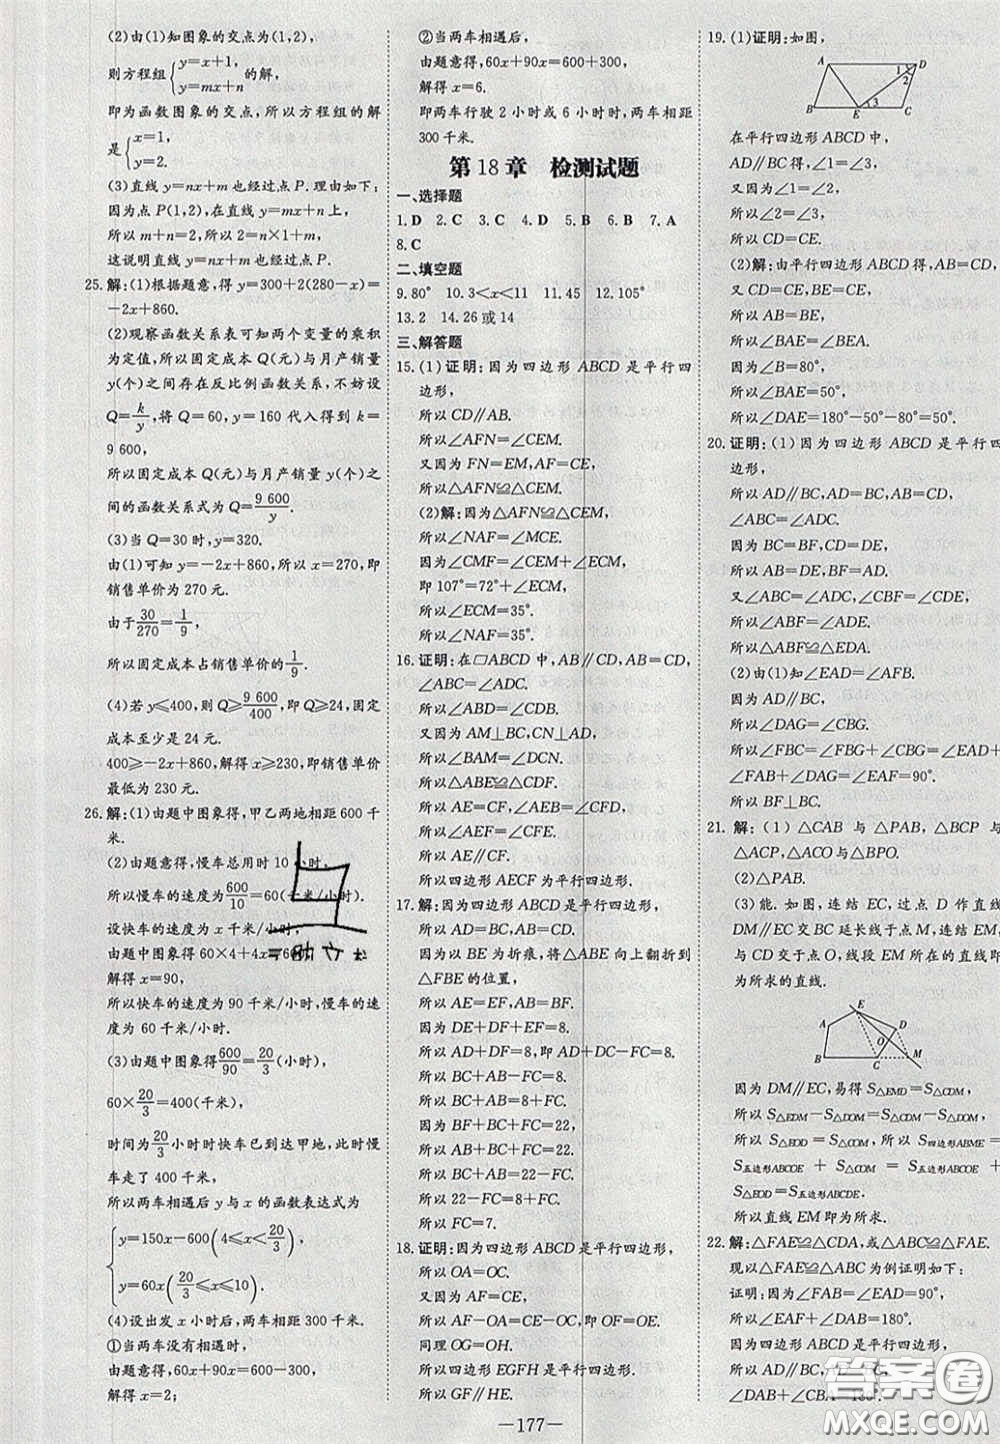 (2)由(1)知图象的交点为(1,2),
则方程组{y=x+1, y=mx+n 的解,
即为函数图象的交点,所以方程组的解
是{x=1, y=2.
(3)直线 y=nx+m 也经过点 P. 理由如下:
因为点 P(1,2),在直线 y=mx+n 上,
所以 m+n=2,所以 2=n×1+m,
这说明直线 y=nx+m 也经过点 P.
25.解:(1)根据题意,得 y=300+2(280-x)=
-2x+860.
(2)观察函数关系表可知两个变量的乘积
为定值,所以固定成本 Q(元)与月产销量
y(个)之间存在反比例函数关系,不妨设
Q=k/y,将 Q=60,y=160 代入得到 k=
9 600,
所以固定成本 Q(元)与月产销量 y(个)之
间的函数关系式为 Q=9 600/y.
(3)当 Q=30 时,y=320.
由(1)可知 y=-2x+860,所以 x=270,即
销售单价为 270 元.
由于 30/270=1/9,
所以固定成本占销售单价的 1/9.
(4)若 y≤400,则 Q≥9 600/400,即 Q≥24,固定
成本至少是 24 元.
400≥-2x+860,解得 x≥230,即销售单价
最低为 230 元.
26.解:(1)由题中图象得,甲乙两地相距 600 千
米.
(2)由题意得,慢车总用时 10 小时,
所以慢车的速度为 600/10=60(千米/小时).
设快车的速度为 x 千米/小时,
由题中图象得 60×4+4x=600,
解得 x=90,
所以快车的速度为 90 千米/小时,慢车的速
度为 60 千米/小时.
(3)由题中图象得 600/90=20/3(小时),
60×20/3=400(千米),
时间为 20/3 小时时快车已到达甲地,此时慢
车走了 400 千米,
所以两车相遇后 y 与 x 的函数表达式为
{y=150x-600(4≤x<20/3),
y=60x(20/3≤x≤10).
(4)设出发 x 小时后,两车相距 300 千米.
①当两车没有相遇时,
由题意得,60x+90x=600-300,
解得 x=2;
②当两车相遇后,
由题意得,60x+90x=600+300,
解得 x=6.
即两车行驶 2 小时或 6 小时时,两车相距
300 千米.
第 18 章 检测试题
一、选择题
1.D 2.C 3.C 4.D 5.B 6.B 7.A
8.C
二、填空题
9.80° 10.3<x<11 11.45 12.105°
13.2 14.26 或 14
三、解答题
15.(1)证明:因为四边形 ABCD 是平行四
边形,
所以 CD∥AB.
所以∠AFN=∠CEM.
又因为 FN=EM,AF=CE,
所以△AFN≌△CEM.
(2)解:因为△AFN≌△CEM,
所以∠NAF=∠MCE.
因为∠CMF=∠CEM+∠ECM,
即 107°=72°+∠ECM,
所以∠ECM=35°.
所以∠NAF=35°.
16.证明:在▱ABCD 中,AB∥CD,AB=CD,
∠ABC=∠ADC.
所以∠ABD=∠CDB.
又因为 AM⊥BC,CN⊥AD,
所以∠BAM=∠DCN.
所以△ABE≌△CDF.
所以 AE=CF,∠AEB=∠CFD.
所以∠AEF=∠CFE.
所以 AE∥CF.
所以四边形 AECF 为平行四边形.
17.解:因为四边形 ABCD 是平行四边形,
所以 AD=BC,AB=CD.
因为以 BE 为折痕,将△ABE 向上翻折到
△FBE 的位置,
所以 AE=EF,AB=BF.
因为 DE+DF+EF=8.
所以 AD+DF=8,即 AD+DC-FC=8.
所以 BC+AB-FC=8.
所以 BC+AB=8+FC.
因为 BF+BC+FC=22,
所以 AB+BC+FC=22,
所以 AB+BC=22-FC.
所以 22-FC=8+FC.
所以 FC=7.
18.证明:因为四边形 ABCD 是平行四边形,
所以 OA=OC.
又因为 AF=CE,
所以 AF-OA=CE-OC,即 OF=OE.
同理 OG=OH.
所以四边形 EGFH 是平行四边形.
所以 GF∥HE.
19.(1)证明:如图,
A D 1 2 B E 3 C
在平行四边形 ABCD 中,
AD∥BC 得,∠1=∠3,
又因为∠1=∠2,
所以∠2=∠3,
所以 CD=CE.
(2)解:由平行四边形 ABCD 得,AB=
CD,又因为 CD=CE,BE=CE,
所以 AB=BE.
所以∠BAE=∠BEA.
因为∠B=80°,
所以∠BAE=50°,
所以∠DAE=180°-50°-80°=50°.
20.证明:(1)因为四边形 ABCD 是平行四
边形,
所以 AD∥BC,AD=BC,AB=CD,
∠ABC=∠ADC.
因为 BC=BF,CD=DE,
所以 AB=DE,BF=AD.
又∠ABC=∠ADC,∠CBF=∠CDE,
所以∠ABF=∠ADE.
所以△ABF≌△EDA.
(2)由(1)知∠EAD=∠AFB.
因为 AD∥BC,
所以∠DAG=∠CBG.
所以∠FBC=∠FBG+∠CBG=∠EAD+
∠FAB+∠DAG=∠EAF=90°.
所以 BF⊥BC.
21.解:(1)△CAB 与△PAB,△BCP 与
△ACP,△ACO 与△BPO.
(2)△PAB.
(3)能. 如图,连结 EC,过点 D 作直线
DM∥EC 交 BC 延长线于点 M,连结 EM
与 CD 交于点 O,线段 EM 所在的直线即
为所求的直线.
E A D O B C M
因为 DM∥EC,易得 S△EMD=S△CDM,
所以 S△EDM-S△DOM=S△CDM-S△DOM.
所以 S△EOD=S△COM,所以 S四边形ABME=
S五边形ABCOE + S△COM = S五边形ABCOE +
S△EOD=S五边形ABCDE.
所以直线 EM 即为所求.
22.解:△FAE≌△CDA,或△ABC≌△FAE.
现以△FAE≌△ABC 为例证明如下:
证明:因为∠FAB=∠EAD=90°,
所以∠EAF+∠DAB=180°.
因为四边形 ABCD 是平行四边形,
所以 AD∥BC,AD=BC.
∠DAB+∠CBA=180°.
—177—
答案圈
MXQE.COM